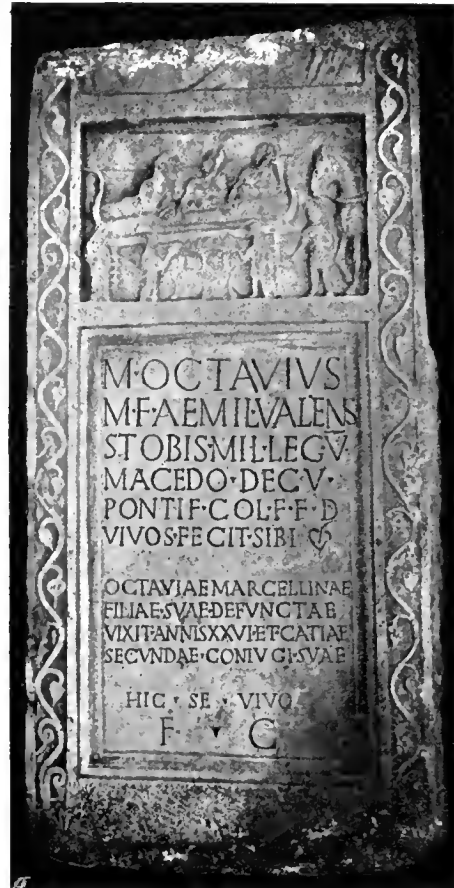 M·OCTAVIVS
M·F·AEMIL·VALENS
STOBIS·MIL·LEG·V̅
MACEDO·DEC·V·
PONTIF·COL·F·F·D
VIVOS·FECIT·SIBI
OCTAVIAE MARCELLINAE
FILIAE·SVAE·DEFVNCTAE
VIXIT·ANNIS XXVI·ET·CATIAE
SECVNDAE·CONIVGI·SVAE
HIC · SE · VIVO
F · C